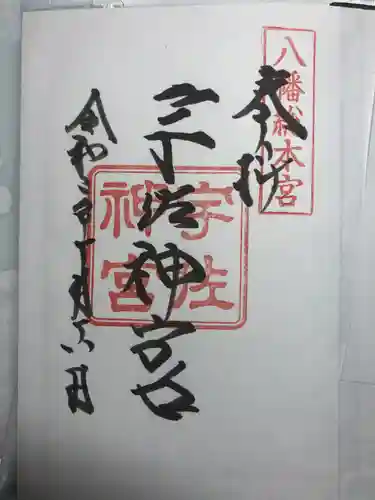 八幡総本宮
奉拝
宇佐神宮
宇佐
神宮
令和 年十月六日